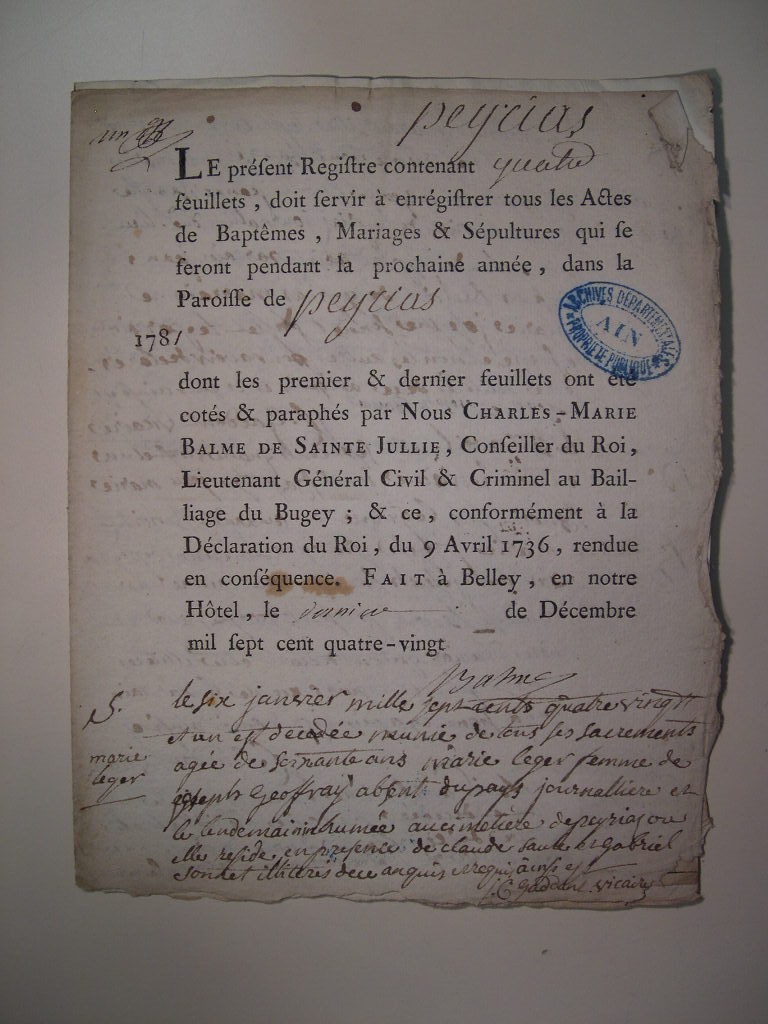 peyrias
un
LE préſent Regiſtre contenant quatre
feuillets, doit ſervir à enrégiſtrer tous les Actes
de Baptêmes, Mariages & Sépultures qui ſe
feront pendant la prochaine année, dans la
Paroiſſe de peyrias
1781
ARCHIVES DÉPARTEMENTALES
AIN
PROPRIÉTÉ PUBLIQUE
dont les premier & dernier feuillets ont été
cotés & paraphés par Nous CHARLES-MARIE
BALME DE SAINTE JULLIE, Conſeiller du Roi,
Lieutenant Général Civil & Criminel au Bail-
liage du Bugey ; & ce, conformément à la
Déclaration du Roi, du 9 Avril 1736, rendue
en conſéquence. FAIT à Belley, en notre
Hôtel, le de Décembre
mil ſept cent quatre-vingt
Balme
S.
marie
leger
le six janvier mille sept cents quatre vingt
et un est decedée munie de tous ses sacrements
agée de soixante ans marie leger femme de
joseph Geoffray absent du pays journalliere et
le lendemain inhumée au cimetière de peyrias ou
elle reside en presence de claude et gabriel
illiteres de ce enquis et requis
vicaire